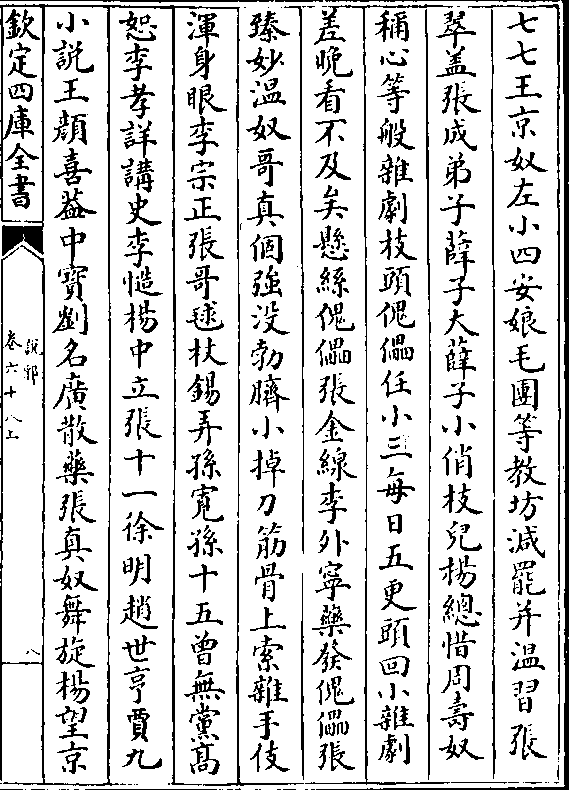 七七王京奴左小四安娘毛團等教坊減罷并温習張
翠盖張成弟子薛子大薛子小俏枝兒楊總惜周壽奴
稱心等般雜劇枝頭傀儡任小三每日五更頭回小雜劇
差晚看不及矣懸絲傀儡張金線李外寧藥發傀儡張
臻妙温奴哥真個強没勃臍小掉刀筋骨上索雜手伎
渾身眼李宗正張哥毬杖錫弄孫寛孫十五曾無黨髙
恕李孝詳講史李慥楊中立張十一徐明趙世亨賈九
小說王顔喜葢中寳劉名廣散藥張真奴舞旋楊望京
欽定四庫全書
說郛
卷六十八上
八